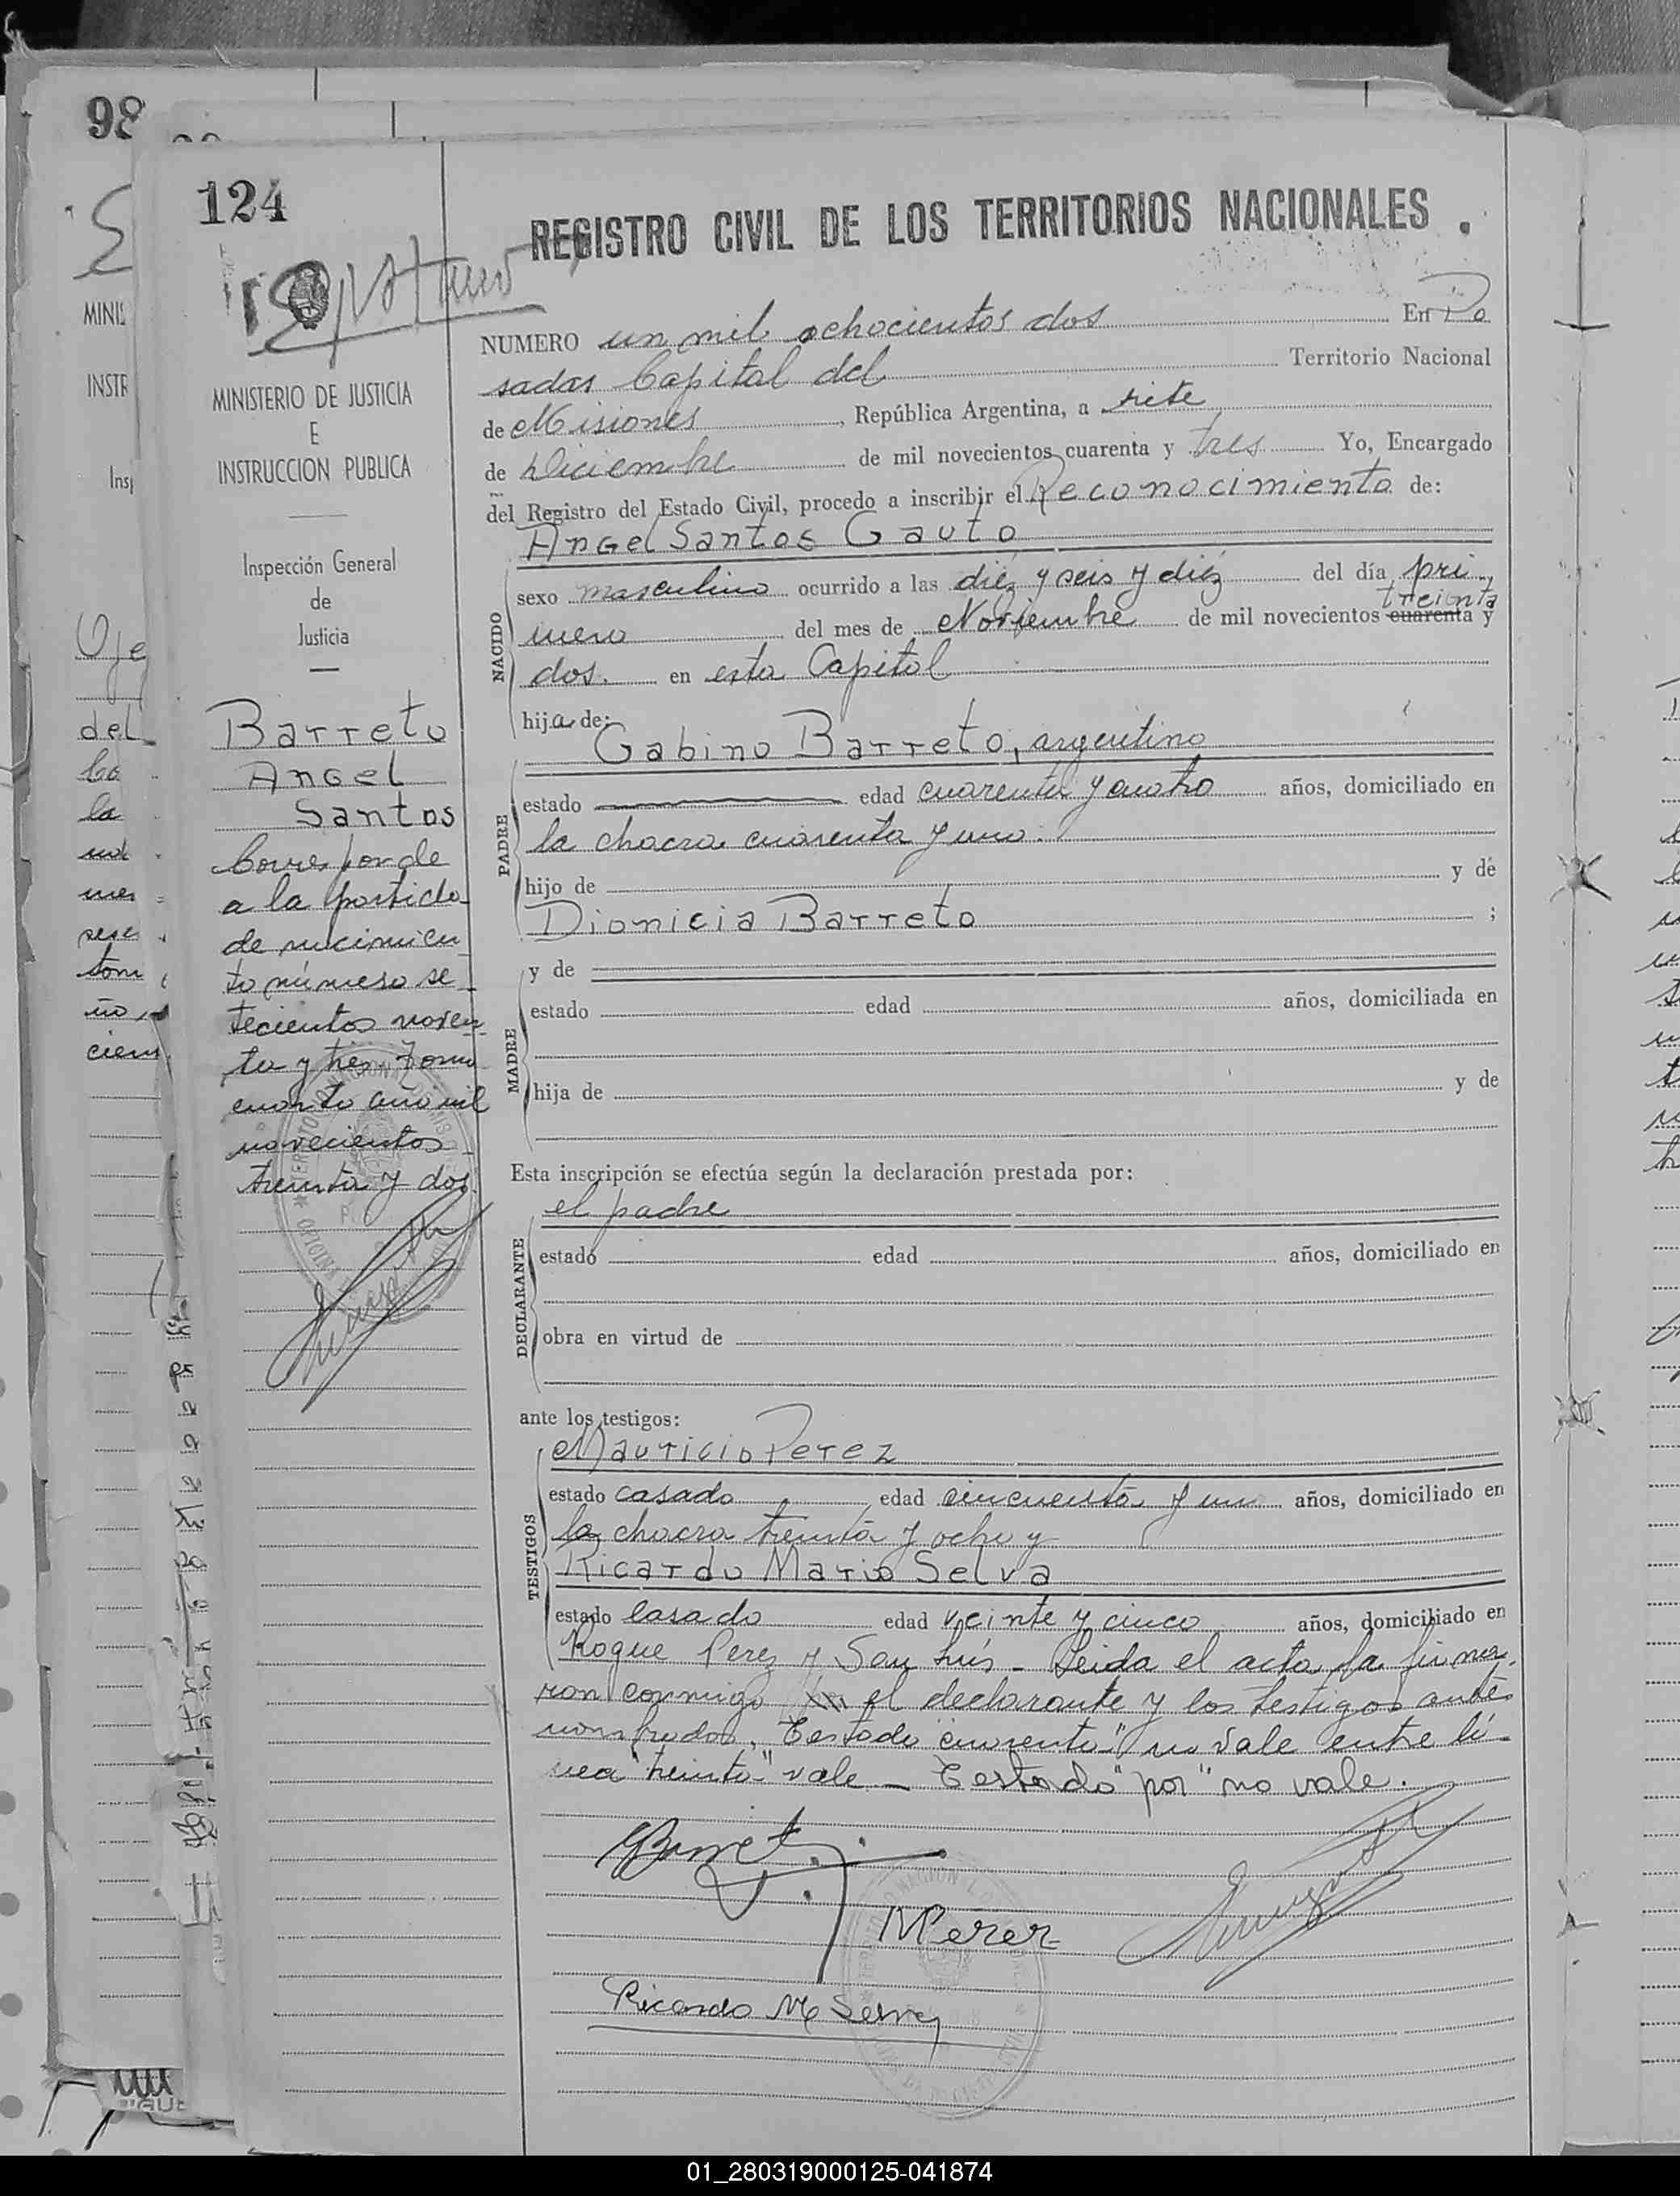 98
124
REGISTRO CIVIL DE LOS TERRITORIOS NACIONALES .
NUMERO un mil ochocientos dos En Po
sadas Capital del Territorio Nacional
de Misiones, República Argentina, a siete
de Diciembre de mil novecientos cuarenta y tres Yo, Encargado
del Registro del Estado Civil, procedo a inscribir el Reconocimiento de:
Angel Santos Gauto
NACIDO
sexo masculino ocurrido a las diéz y seis y diéz del día pri
treinta
mero del mes de Noviembre de mil novecientos cuarenta y
dos. en esta Capital
hija de:
Gabino Barreto, argentino
PADRE
estado edad cuarenta y cuatro años, domiciliado en
la chacra cuarenta y uno.
hijo de y de
Dionicia Barreto ;
MADRE
y de
estado edad años, domiciliada en
hija de y de
Esta inscripción se efectúa según la declaración prestada por:
el padre
DECLARANTE
estado edad años, domiciliado en
obra en virtud de
ante los testigos:
Mauricio Perez
TESTIGOS
estado casado edad cincuenta y uno años, domiciliado en
la chacra treinta y ocho y
Ricardo Mario Selva
estado casado edad veinte y cinco años, domiciliado en
Roque Perez y San Luis - Leida el acta la firma
ron conmigo el declarante y los testigos ante
nombrados, Testado "cuarenta" no vale entre lí-
nea "treinta" vale - Testado "por" no vale.
M Perez
Ricardo M Selva
MINISTERIO DE JUSTICIA
E
INSTRUCCION PUBLICA
Inspección General
de
Justicia
Barreto
Angel
Santos
Corresponde
a la partida
de nacimien
to número se
tecientos noven
ta y tres tomo
cuarto año mil
novecientos
treinta y dos
MINIS
INSTR
Insp
del
la
cien
01_280319000125-041874